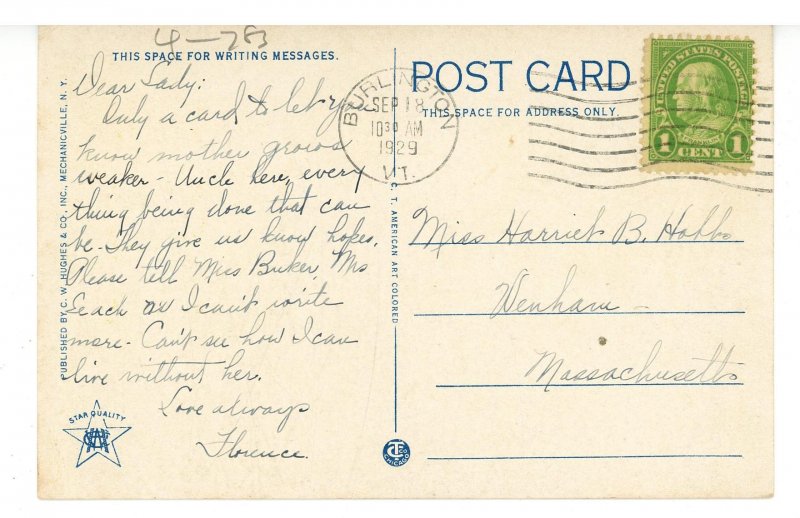 4-28
THIS SPACE FOR WRITING MESSAGES.
Dear Lady:
Only a card to let you
know mother grows
weaker - Uncle here, every
thing being done that can
be - They give us know hopes.
Please tell Miss Mrs
as I can't write
more - Can't see how I can
live without her.
Love always
Florence.
PUBLISHED BY C. W. HUGHES & CO., INC., MECHANICVILLE, N. Y.
STAR QUALITY
C. T. AMERICAN ART COLORED
CHICAGO
POST CARD
THIS SPACE FOR ADDRESS ONLY.
BURLINGTON
SEP 18
10 30 AM
1929
VT.
UNITED STATES POSTAGE
FRANKLIN
1 CENT 1
Miss Harriet B. Hobbs
Wenham -
Massachusetts